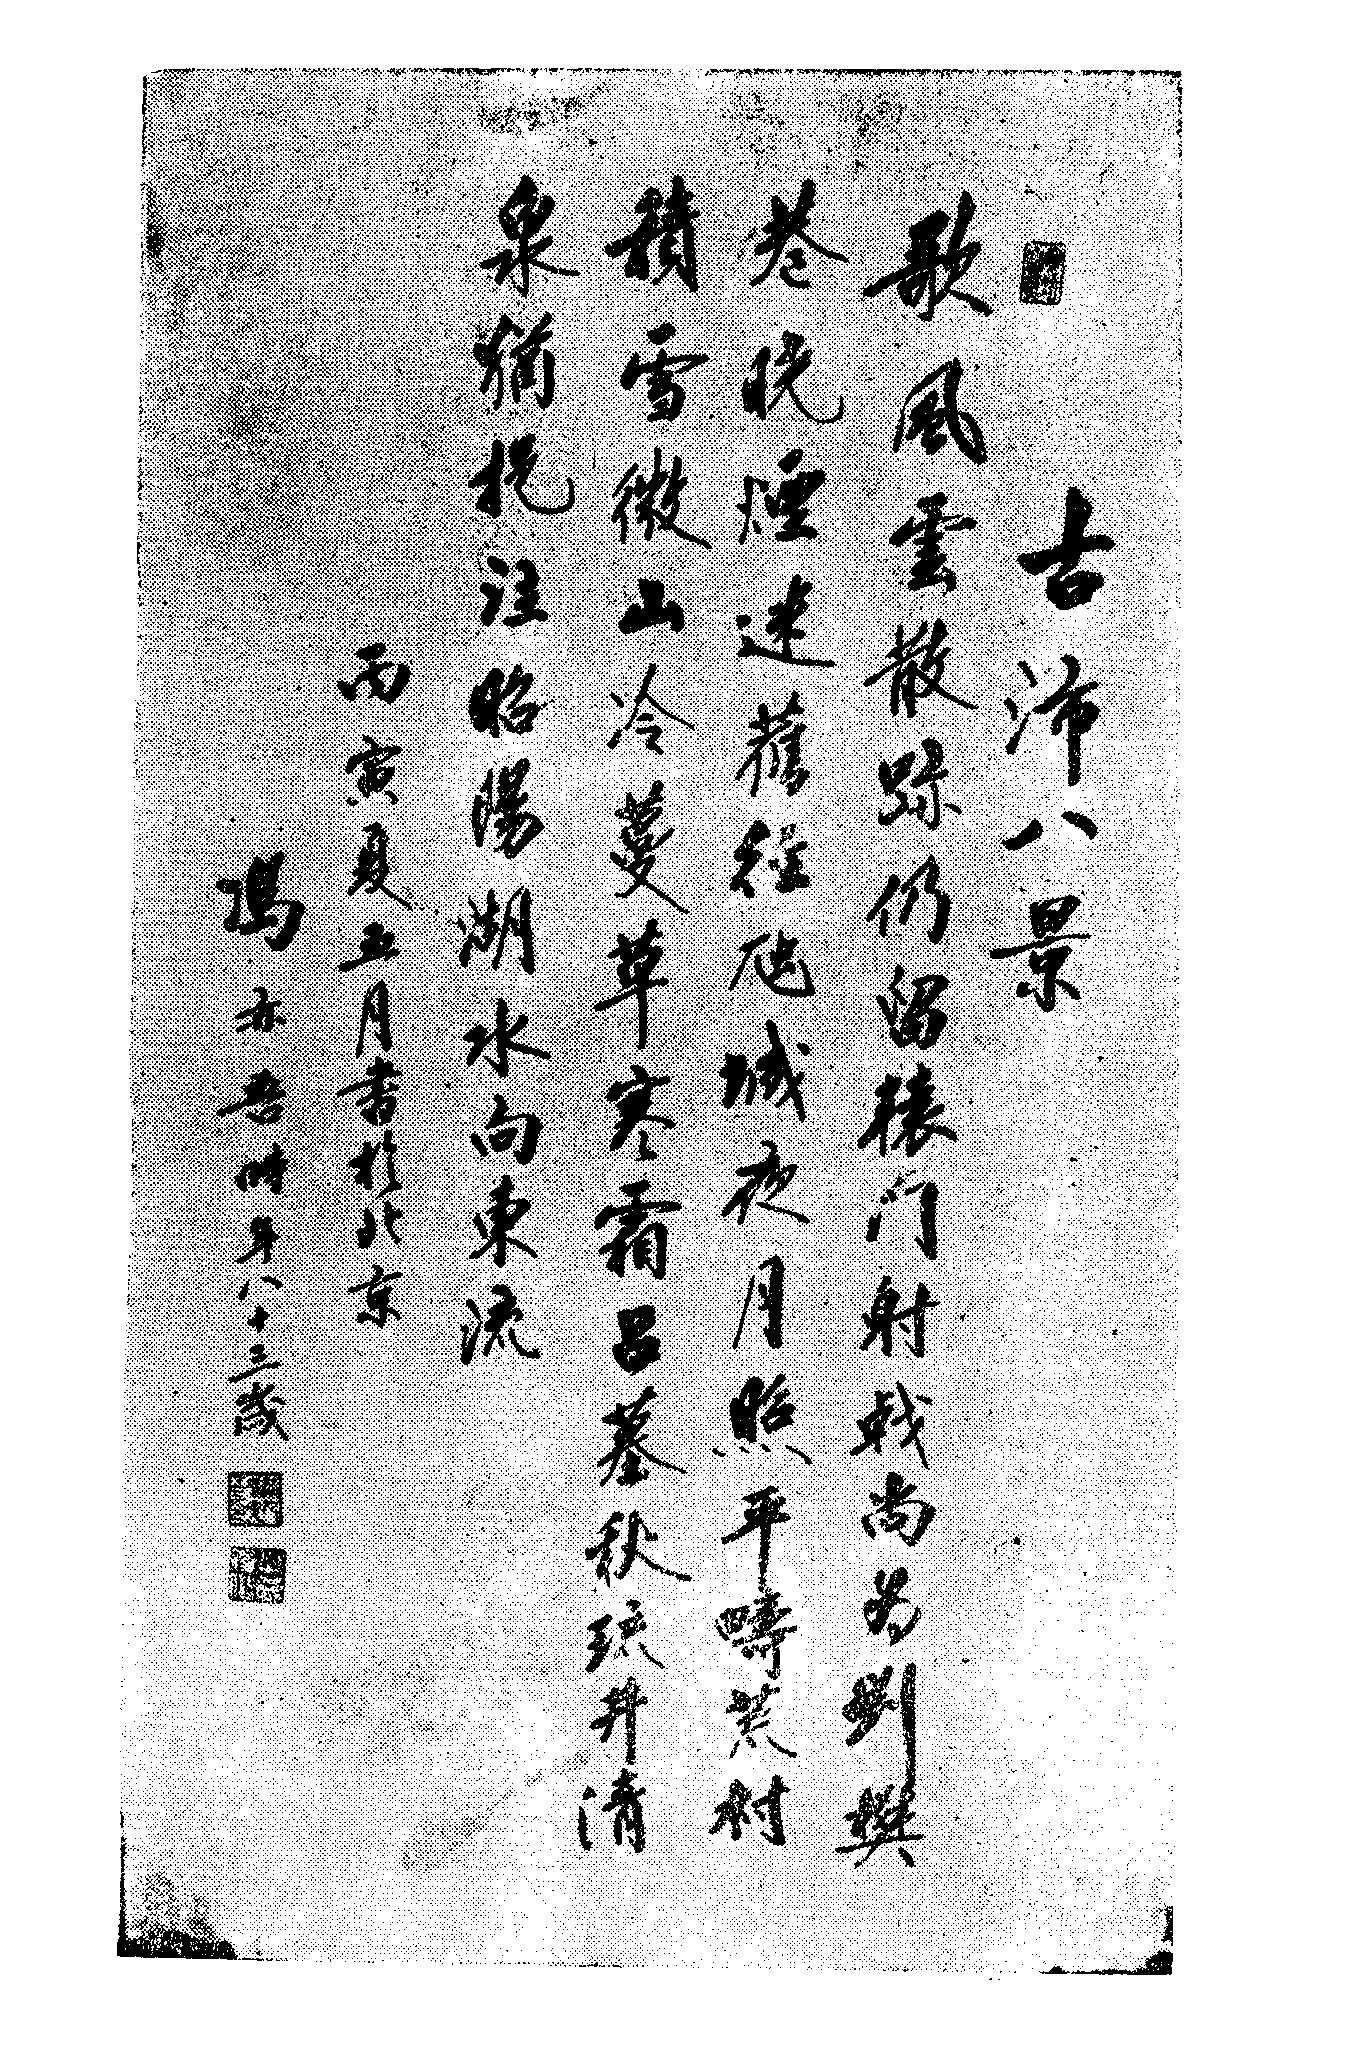 古沛八景
歌風雲散跡仍留轅門射戟尚易劉樊
巷晓煙迷舊徑 城夜月照平疇荒村
積雪微山冷蔓草寒霜呂墓秋琉井清
泉猶挹注昭陽湖水向東流
丙寅夏五月書於北京
馮亦吾時年八十三歲